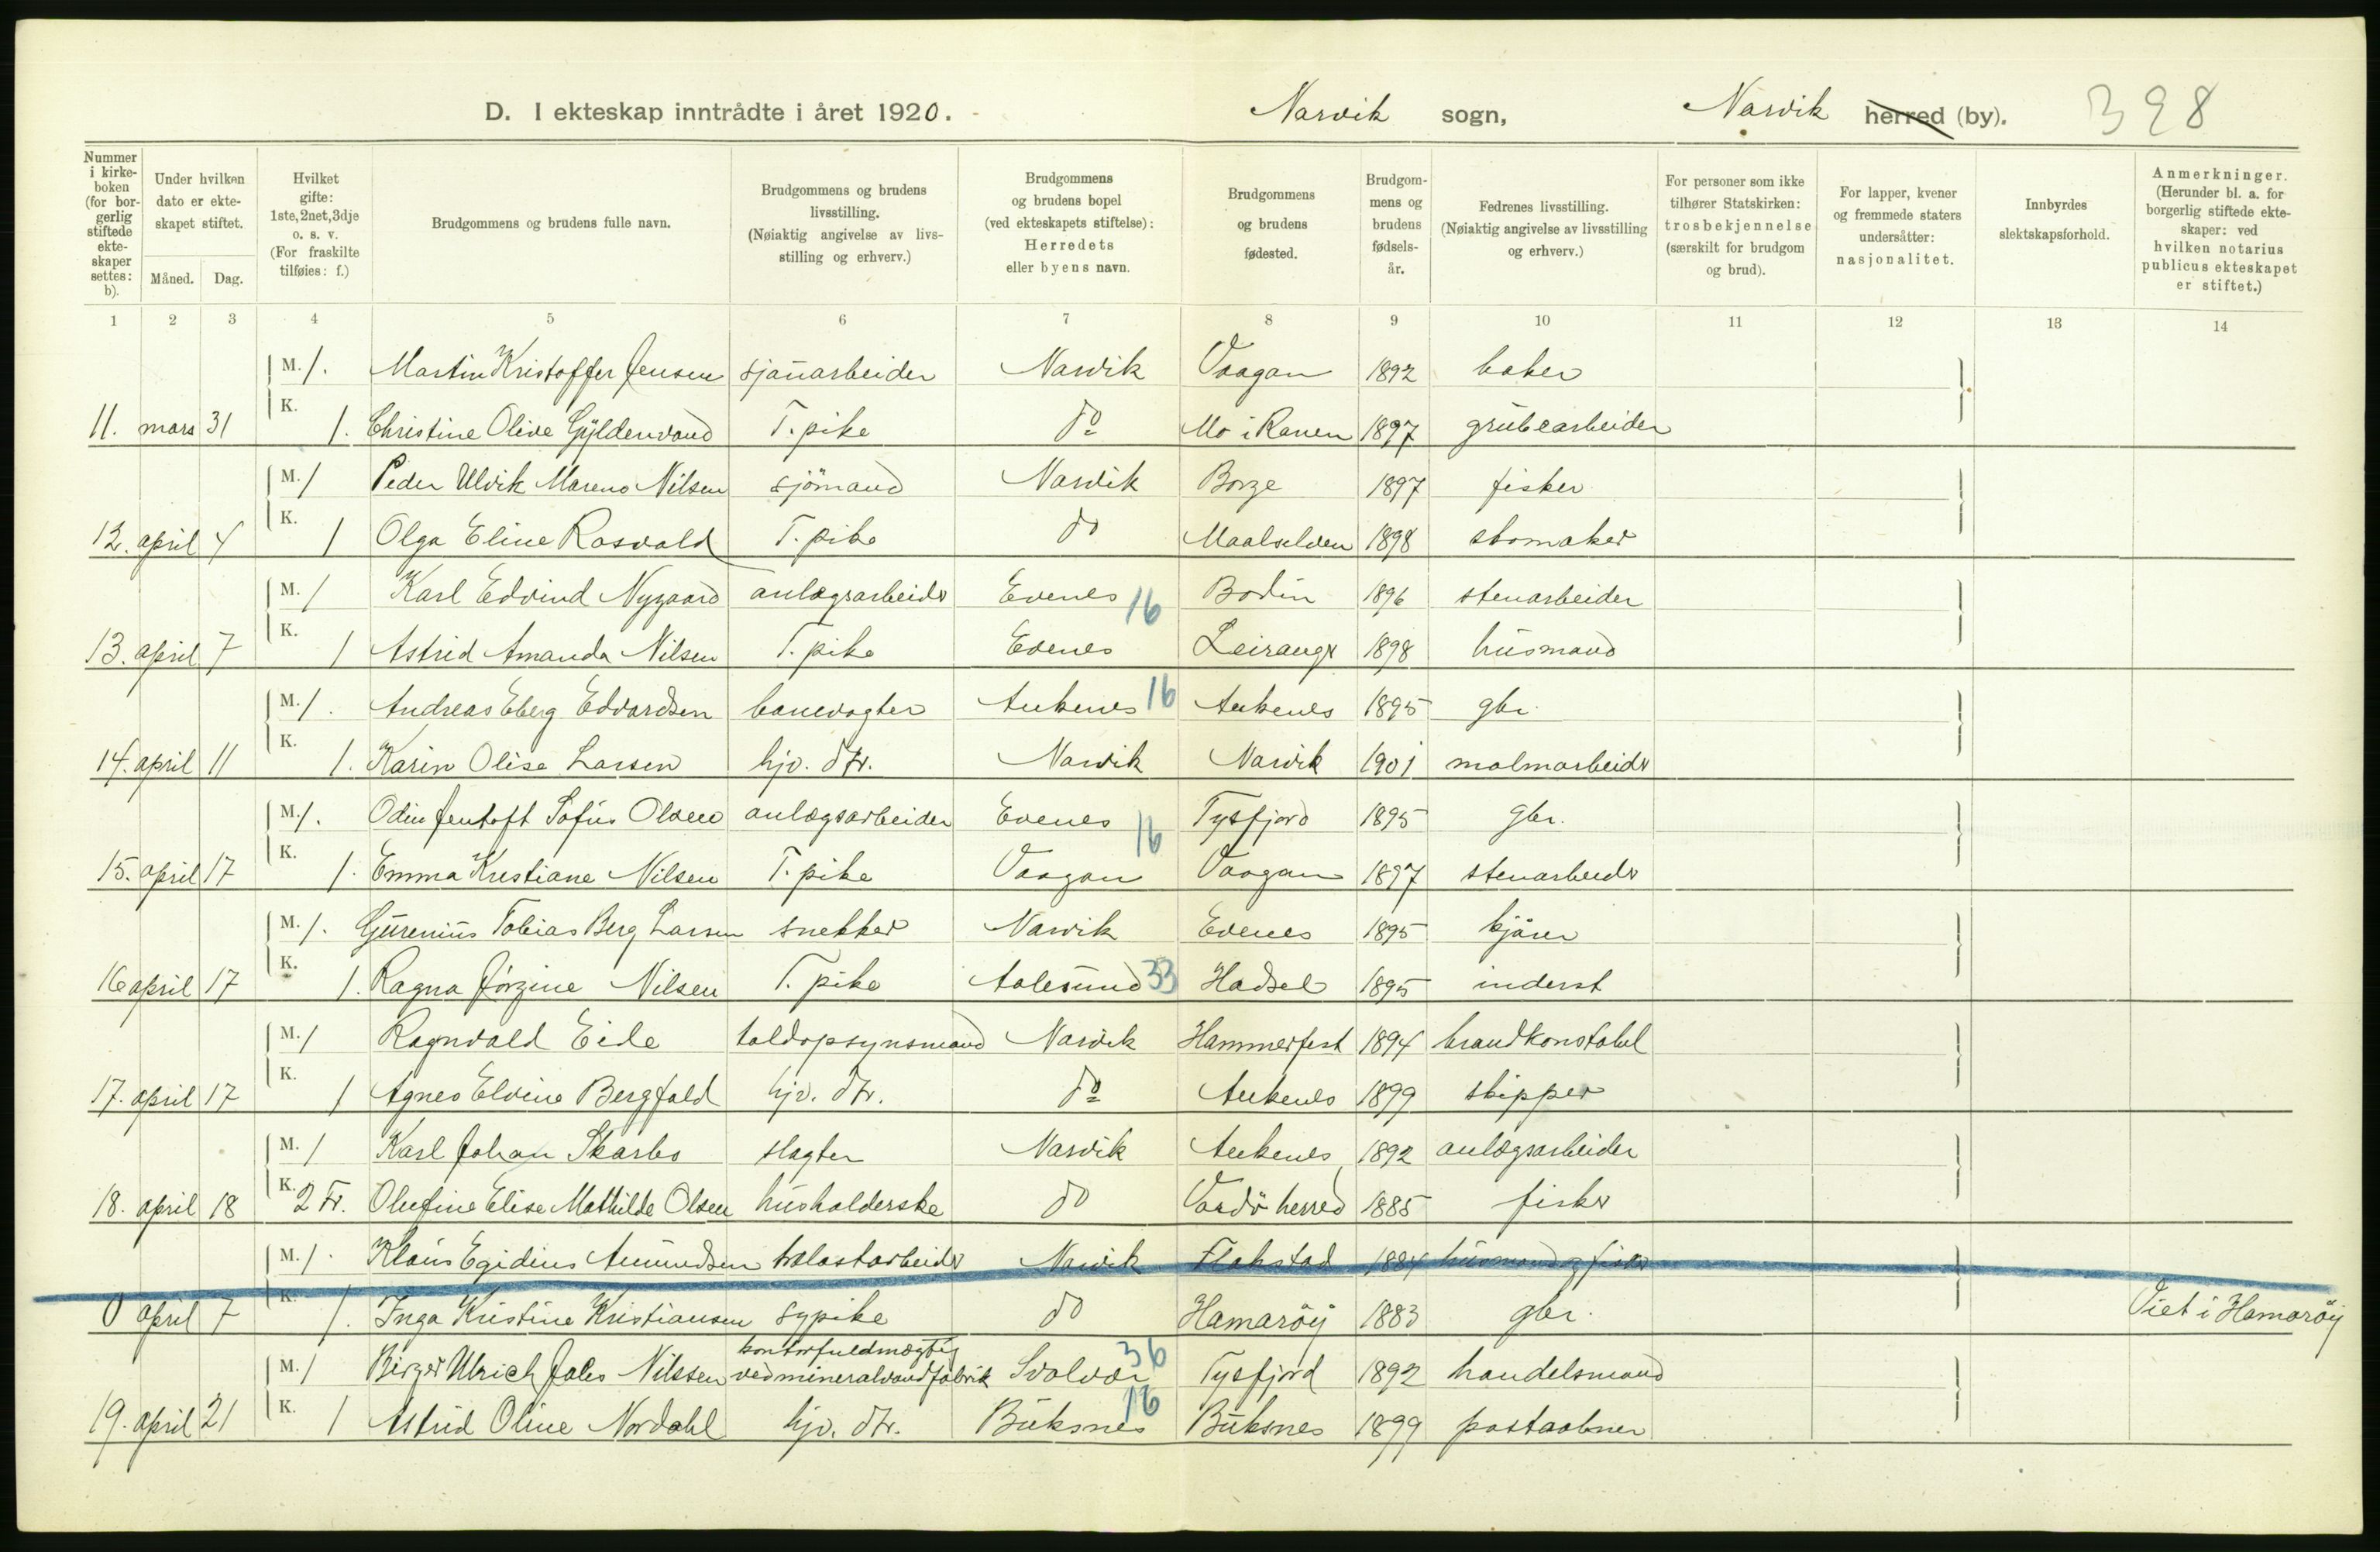 D. I ekteskap inntrådte i året 1920. Narvik sogn, Narvik herred (by). 398
Nummer i kirkeboken (for borgerlig stiftede ekteskaper settes: b). Under hvilken dato er ekteskapet stiftet. Måned. Dag. Hvilket gifte: 1ste, 2net, 3dje o. s. v. (For fraskilte tilføies: f.) Brudgommens og brudens fulle navn. Brudgommens og brudens livsstilling. (Nøiaktig angivelse av livsstilling og erhverv.) Brudgommens og brudens bopel (ved ekteskapets stiftelse): Herredets eller byens navn. Brudgommens og brudens fødested. Brudgommens og brudens fødselsår. Fedrenes livsstilling. (Nøiaktig angivelse av livsstilling og erhverv.) For personer som ikke tilhører Statskirken: trosbekjennelse (særskilt for brudgom og brud). For lapper, kvener og fremmede staters undersåtter: nasjonalitet. Innbyrdes slektskapsforhold. Anmerkninger. (Herunder bl. a. for borgerlig stiftede ekteskaper: ved hvilken notarius publicus ekteskapet er stiftet.)
1 2 3 4 5 6 7 8 9 10 11 12 13 14
M. 1. Martin Kristoffer Jensen sjauarbeider Narvik Vaagan 1892 baker
11. mars 31 K. 1. Christine Olive Gyldenvand T. pike do Mo i Ranen 1897 grubearbeider
M. 1 Peder Ulvik Mareno Nilsen sjömand Narvik Borge 1897 fisker
12. april 4 K. 1 Olga Eline Rosvold T. pike do Maalselven 1898 skomaker
M. 1 Karl Edvind Nygaard anlægsarbeider Evenes 16 Bodin 1896 stenarbeider
13. april 7 K. 1 Astrid Amanda Nilsen T. pike Evenes Leiranger 1898 husmand
M. 1. Andreas Eberg Edvardsen banevogter Ankenes 16 Ankenes 1895 gbr.
14. april 11 K. 1. Karin Olise Larsen hjv. dtr. Narvik Narvik 1901 malmarbeider
M. 1. Odin Jentoft Sofus Olsen anlægsarbeider Evenes 16 Tysfjord 1895 gbr.
15. april 17 K. 1. Emma Kristiane Nilsen T. pike Vaagan Vaagan 1897 stenarbeider
M. 1. Gurenius Tobias Berg Larsen snekker Narvik Evenes 1895 kjörer
16 april 17 K. 1. Ragna Jørgine Nilsen T. pike Aalesund 33 Hadsel 1895 inderst
M. 1 Ragnvald Eide toldopsynsmand Narvik Hammerfest 1894 brandkonstabel
17. april 17 K. 1 Agnes Elvine Bergfald hjv. dtr. do Ankenes 1899 skipper
M. 1 Karl Johan Skarbo slagter Narvik Ankenes 1892 anlægsarbeider
18. april 18 K. 2 Fr. Olufine Elise Mathilde Olsen husholderske do Vardö herred 1885 fisker
M. 1. Klaus Egidius Amundsen Narvik Flakstad 1884 husmand og fisker
0 april 7 K. 1. Inga Kristine Kristiansen sypike do Hamaröy 1883 gbr. Viet i Hamaröy
M. 1 Birger Ulrich Johs Nilssen kontorfuldmægtig ved mineralvandfabrik Svolvær 36 Tysfjord 1892 handelsmand
19. april 21 K. 1 Astrid Oline Nordahl hjv. dtr. Buksnes 16 Buksnes 1899 postaabner